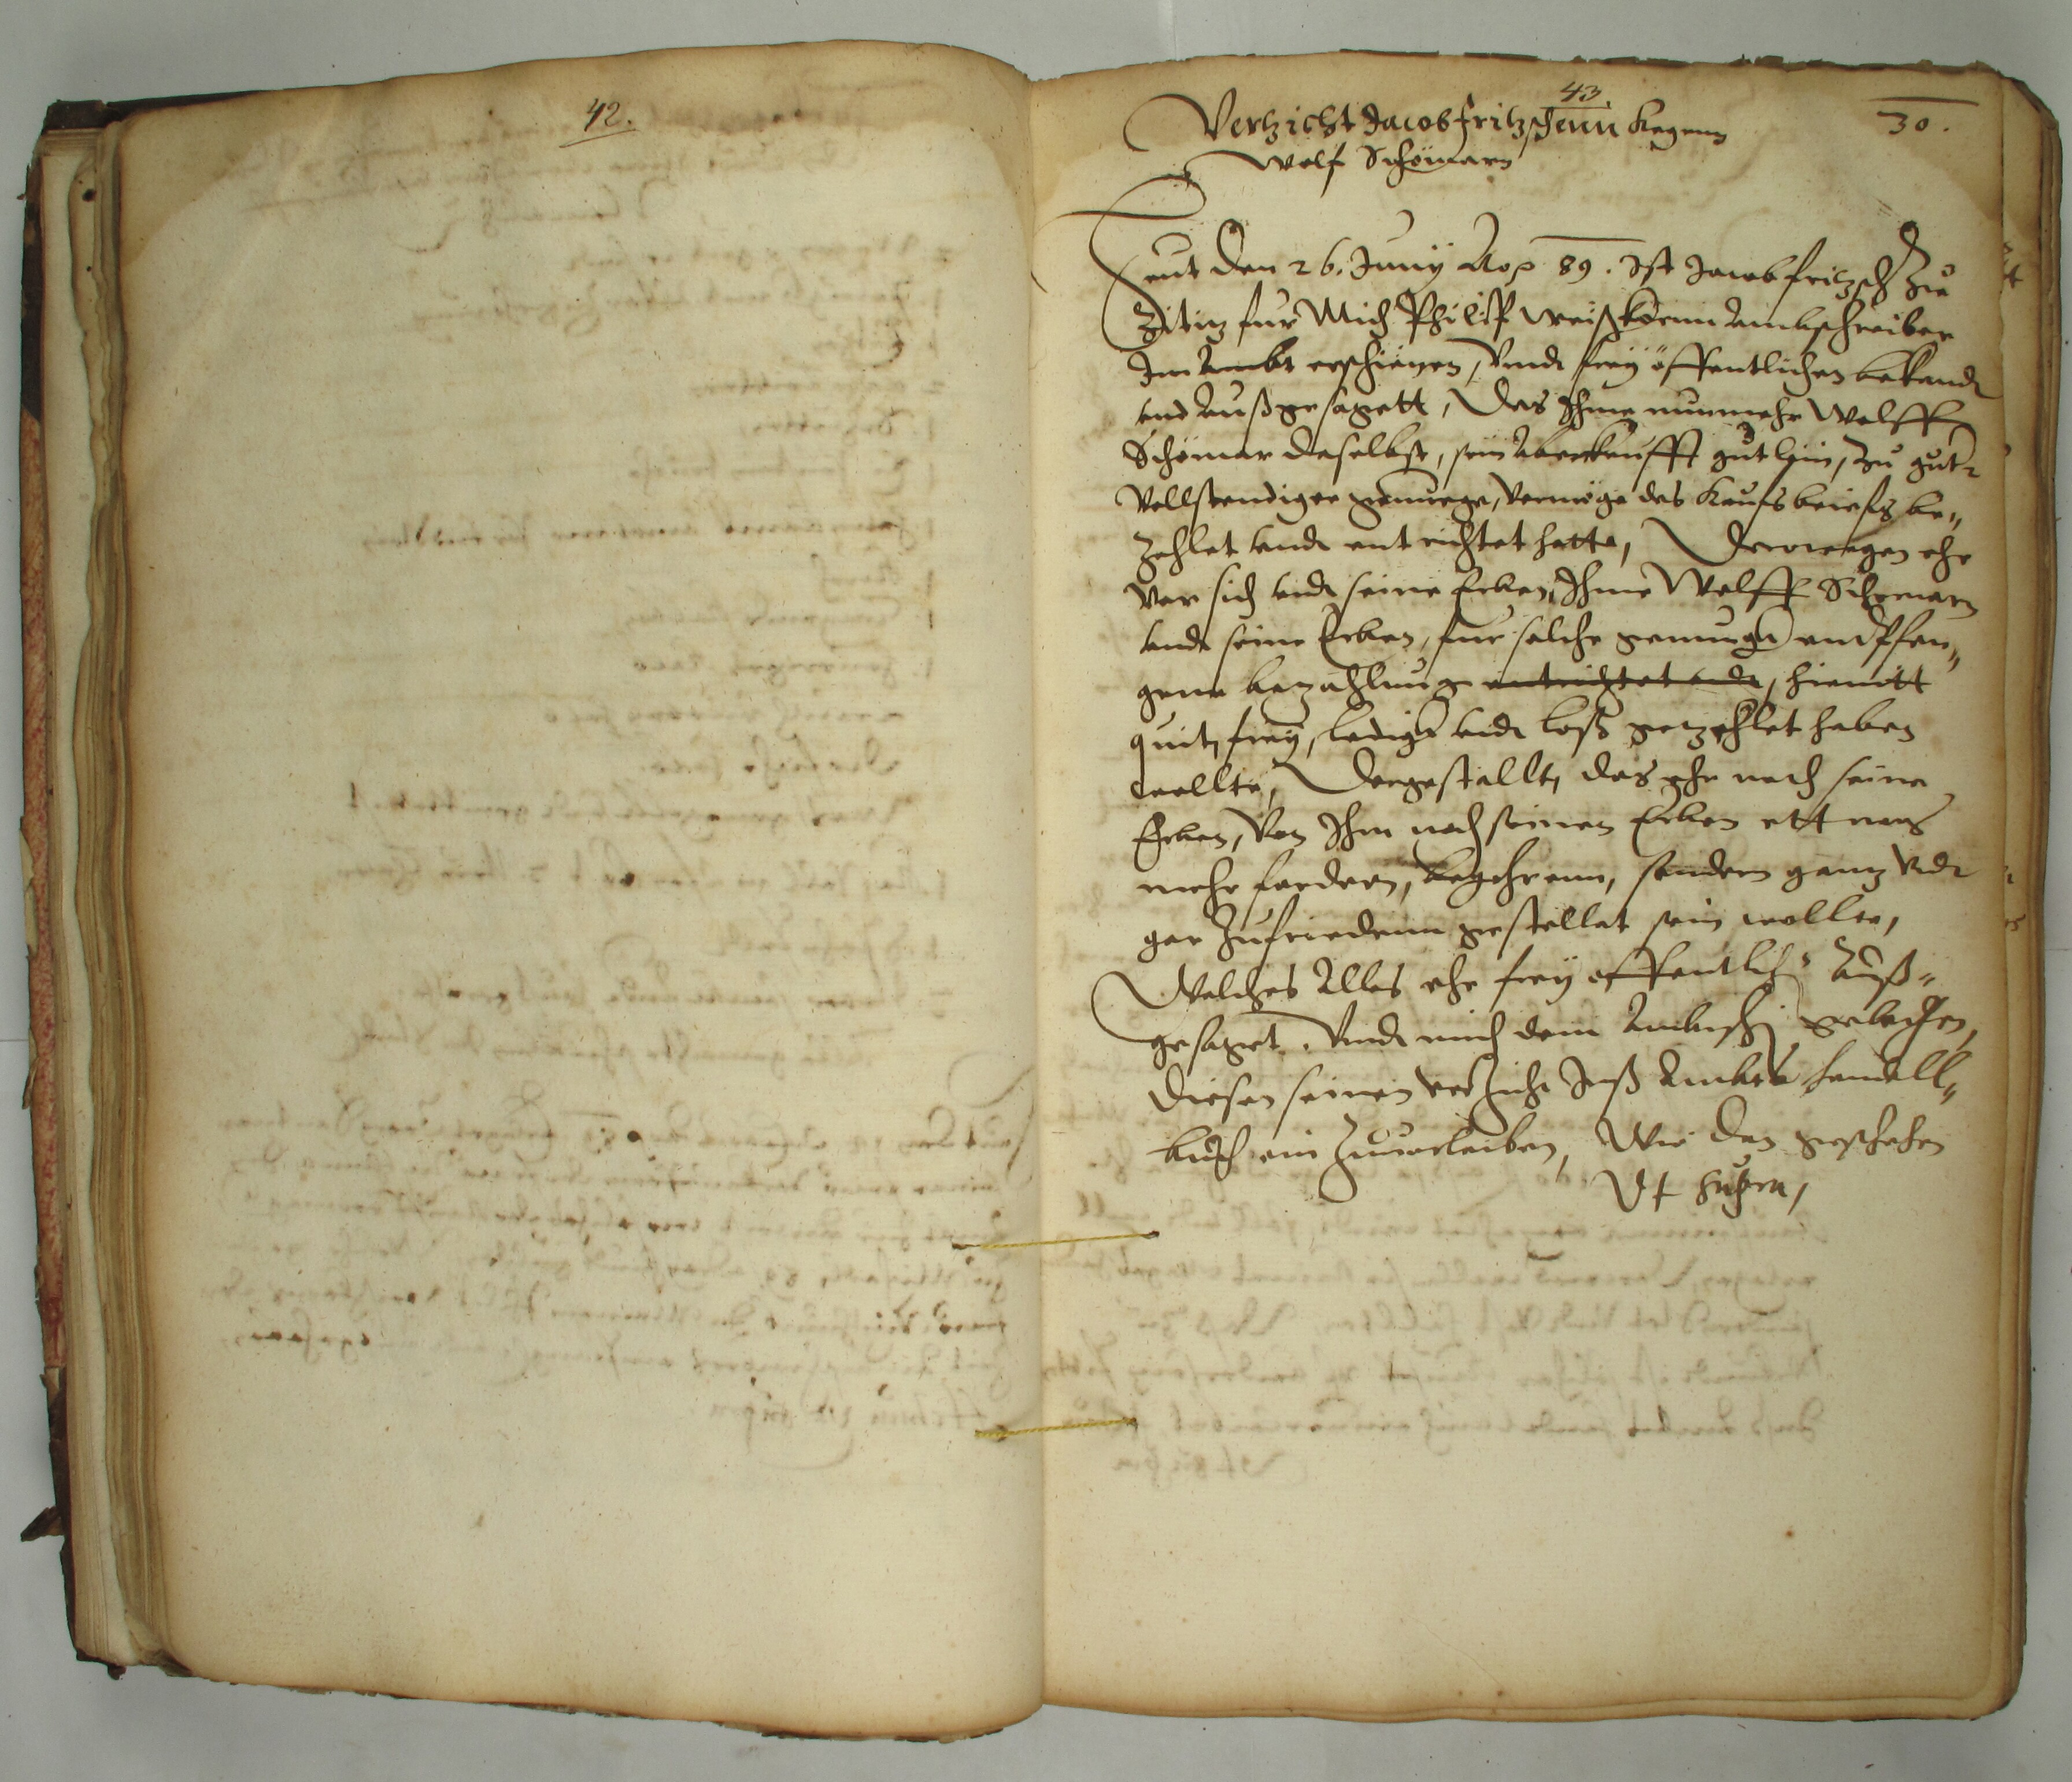 42.
43.
30.
Vertzicht Jacob Fritzschenn kegenn
Wolf Schömarn
Heut den 26. Juny Ao p 89. Ist Jacob Fritzsch zu
fur Mich Philip Weißkornn Ambschreiber
Im Ambt erschienen, Vnnd frey öffentlichen bekandt
vnd Außgesagett, Das Ihme nunmehr Wolff
Schömar daselbst, sein Aberkaufft gutlein, zu guter
Vollstendiger genuege, vermöge des Kaufsbriefs be„
zehlet vnd entrichtet hette, Derowegen ehr
Vor sich vnd seine Erben, Ihme Wolff Schemarn
vnd seine Erben, fur solche genuge endtpfan„
gene bezahlung entrichtet vnd, hiemitt
quit, frey, ledig vnd loß getzehlet haben
wollte, Dergestallt, das ehr noch seine
Erben, Von Ihm noch seinen Erben ettwas
mehr fordern, begehrenn, sondern gantz vnd
gar Zufriedenn gestellet sein wollte,
Welches Alles ehr frey offentlich Auß„
gesaget. Vnnd mich den Ambtsch: gebethen,
diesen seinen vertzicht Inß Ambts handell„
buch ein Zuuorleiben, Wie den geschehen
Vt supra,